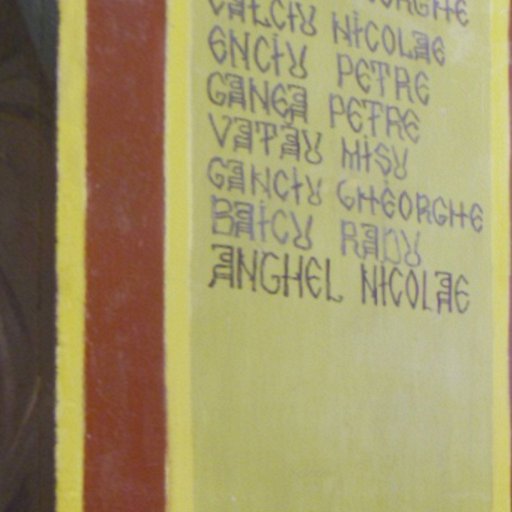 GHEORGHE
VÂLCIU NICOLAE
ENCIU PETRE
GANEA PETRE
VĂTAU MIȘU
GANCIU GHEORGHE
BAICU RADU
ANGHEL NICOLAE